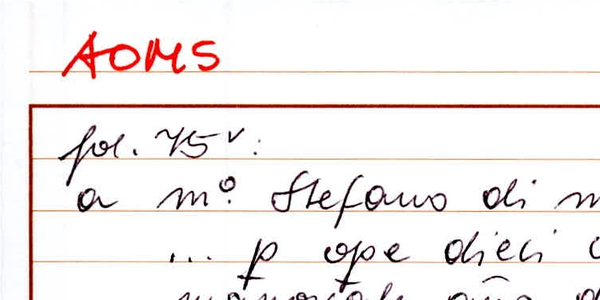 AOMS
fol. 75v:
a mo: Stefano di
... p ope dieci